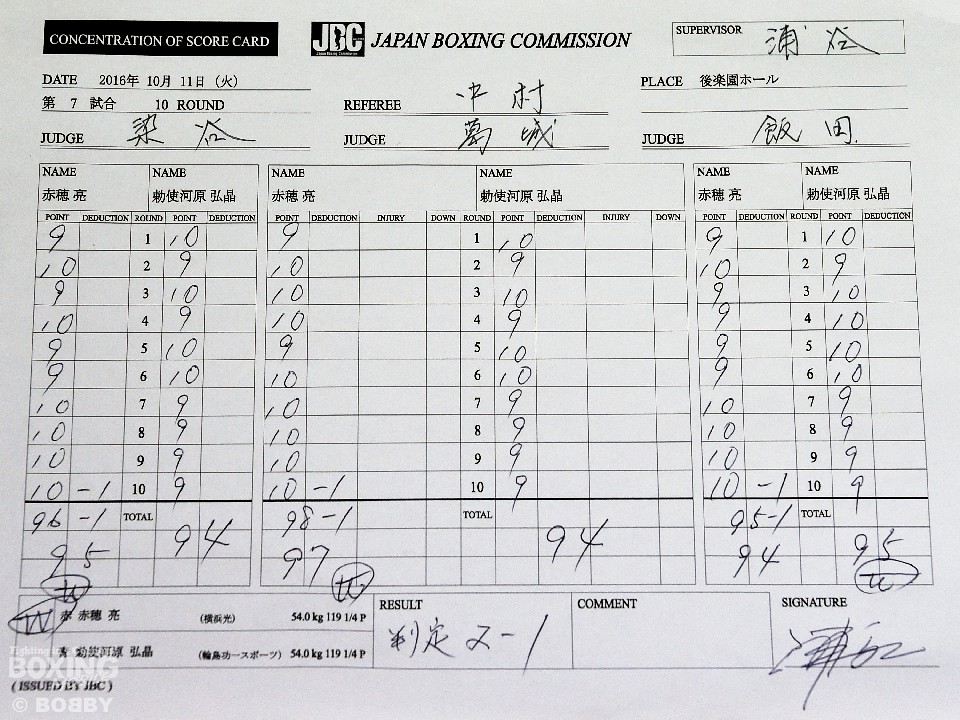 CONCENTRATION OF SCORE CARD JBC JAPAN BOXING COMMISSION SUPERVISOR 浦谷
DATE 2016年 10月 11日 (火) PLACE 後楽園ホール
第 7 試合 10 ROUND REFEREE 中村
JUDGE 染谷 JUDGE 葛城 JUDGE 飯田
NAME NAME NAME NAME NAME NAME
赤穂 亮 勅使河原 弘晶 赤穂 亮 勅使河原 弘晶 赤穂 亮 勅使河原 弘晶
POINT DEDUCTION ROUND POINT DEDUCTION POINT DEDUCTION INJURY DOWN ROUND POINT DEDUCTION INJURY DOWN POINT DEDUCTION ROUND POINT DEDUCTION
9 1 10 9 1 10 9 1 10
10 2 9 10 2 9 10 2 9
9 3 10 10 3 10 9 3 10
10 4 9 10 4 9 9 4 10
9 5 10 9 5 10 9 5 10
9 6 10 10 6 10 9 6 10
10 7 9 10 7 9 10 7 9
10 8 9 10 8 9 10 8 9
10 9 9 10 9 9 10 9 9
10 -1 10 9 10 -1 10 9 10 -1 10 9
96 -1 TOTAL 94 98-1 TOTAL 94 95-1 TOTAL
95 97 94 95
W W W
W 赤 赤穂 亮 (横浜光) 54.0 kg 119 1/4 P RESULT 判定 2-1 COMMENT SIGNATURE 浦谷
青 勅使河原 弘晶 (輪島功一スポーツ) 54.0 kg 119 1/4 P
BOXING
(ISSUED BY JBC)
© BOBBY